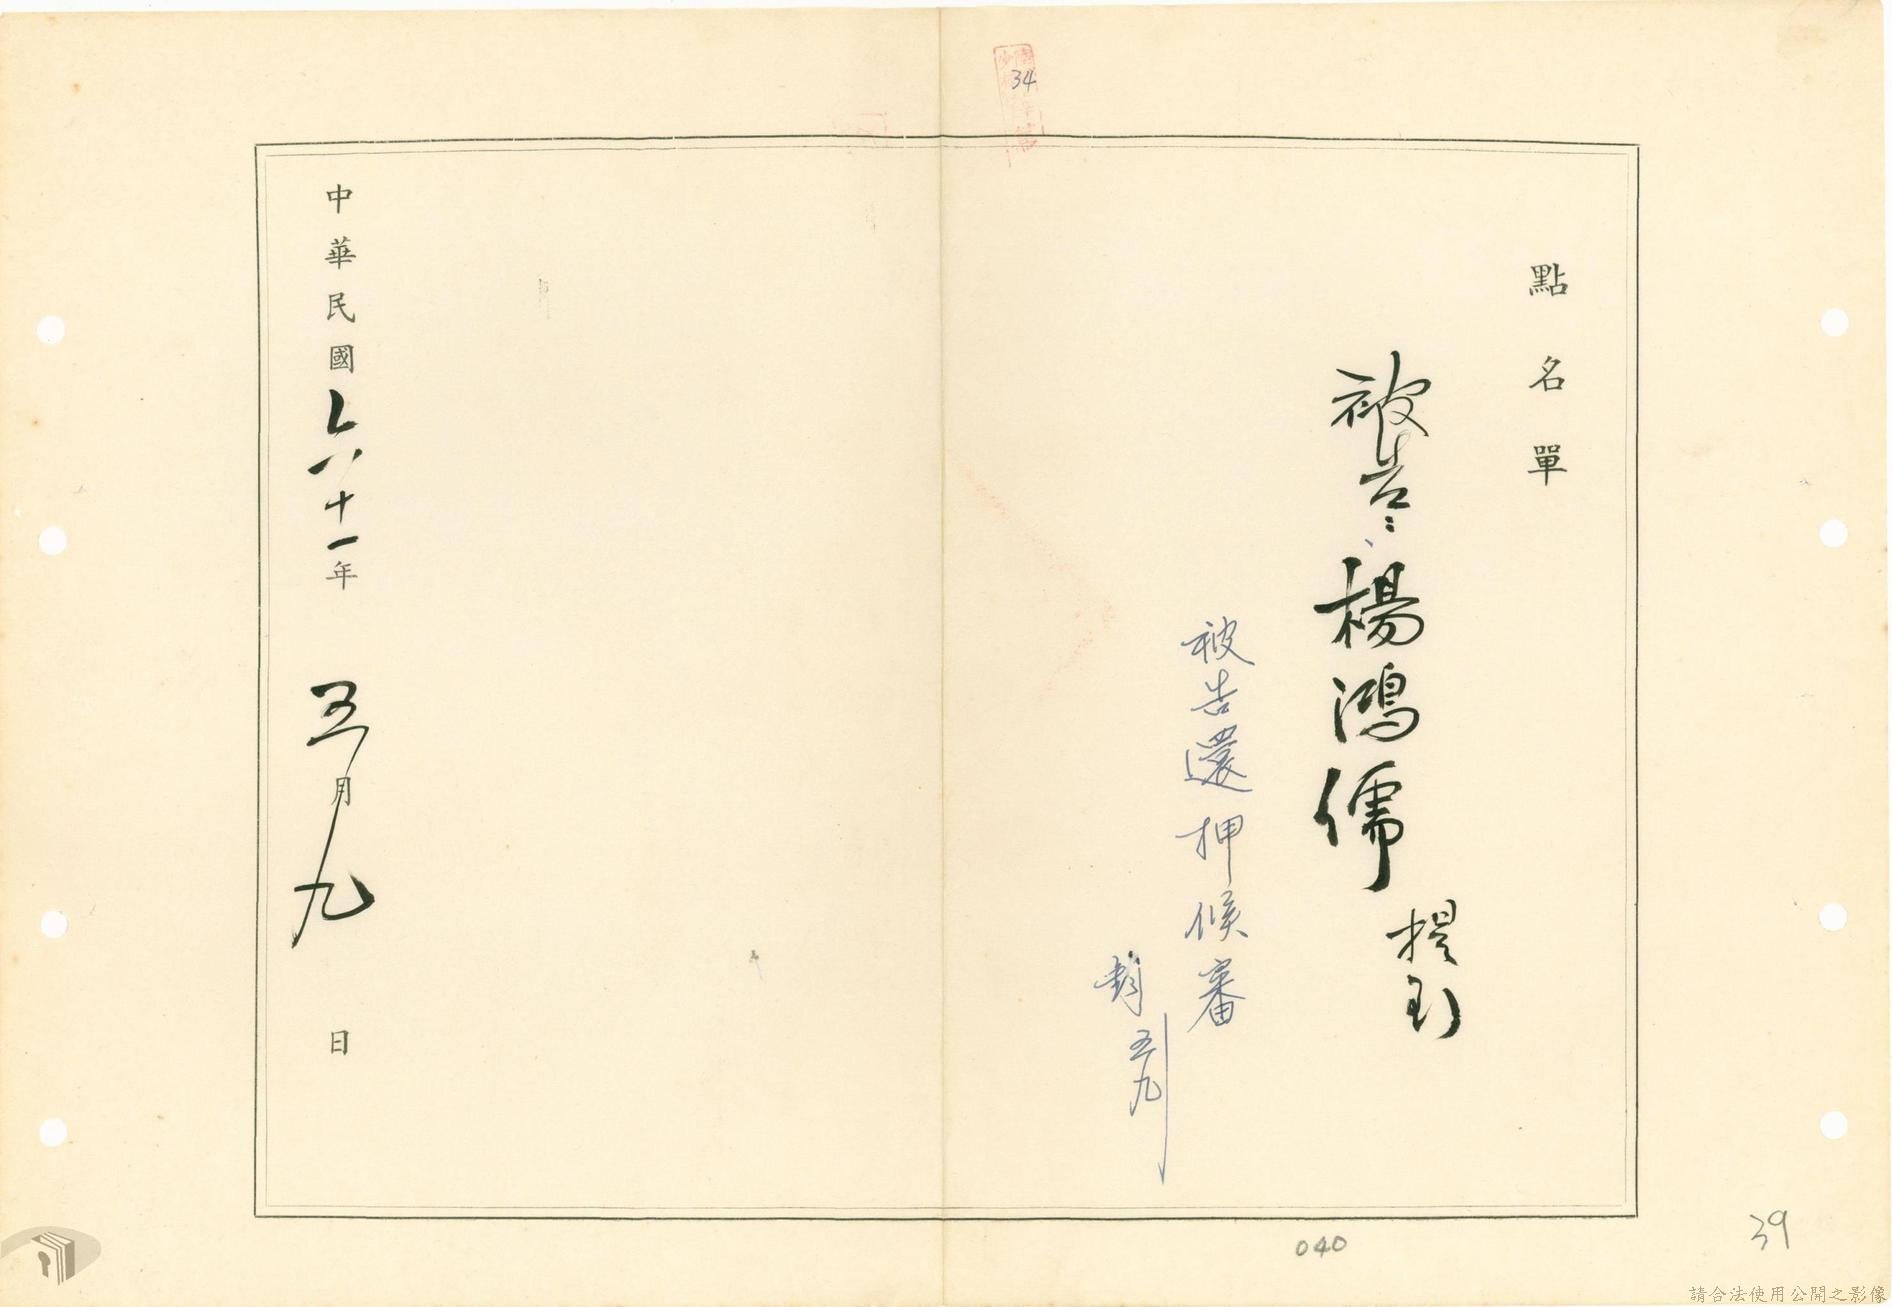 34
點名單
被告：楊鴻儒
提到
被告還押候審
五九
中華民國六十一年五月九日
040
39
請合法使用公開之影像